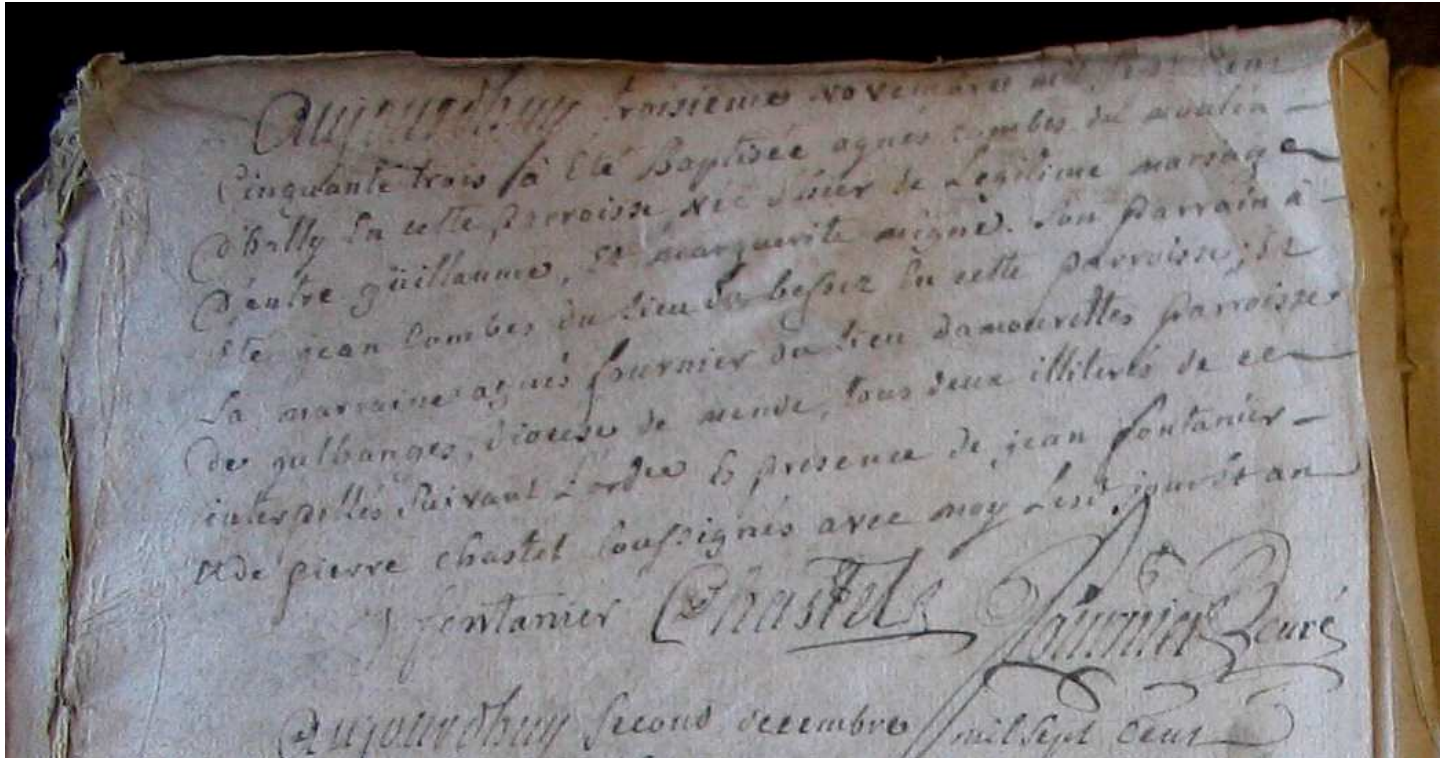 Aujourdhuy troisieme novembre mil sept cent
Cinquante trois à été Baptisée agnes Combes du moulin
d'hally En cette parroisse, née d'hier de Legitime mariage
D'entre guillaume, Et marguerite migné. Son parrain à
été jean Combes du Lieu de bessez En cette parroisse, Et
La marraine agnès fournier du Lieu damourettes parroisse
de diocese de mende, tous deux illiterés de ce
interpellés Suivant L'ordce Es presence de jean fontanier
et de pierre Chastel Soussignés avec moy Lesd. jour et an
J fontanier Chastel fournier curé
Aujourdhuy Second decembre mil Sept Cent